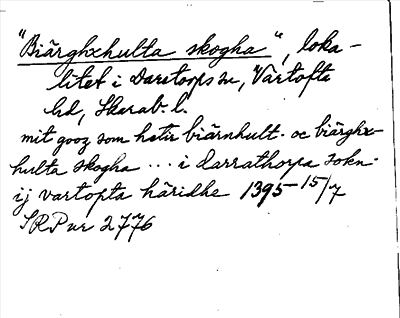 "Biärghxhulta skogha", loka-
litet i Darstorps sn, Vartofta
hd, Skarab. l.
mit gooz som hetir biärnhult. oc biärghx-
hulta skogha ... i darrathorpa sokn.
ij vartopta häridhe 1395 15/7
SRP nr 2776